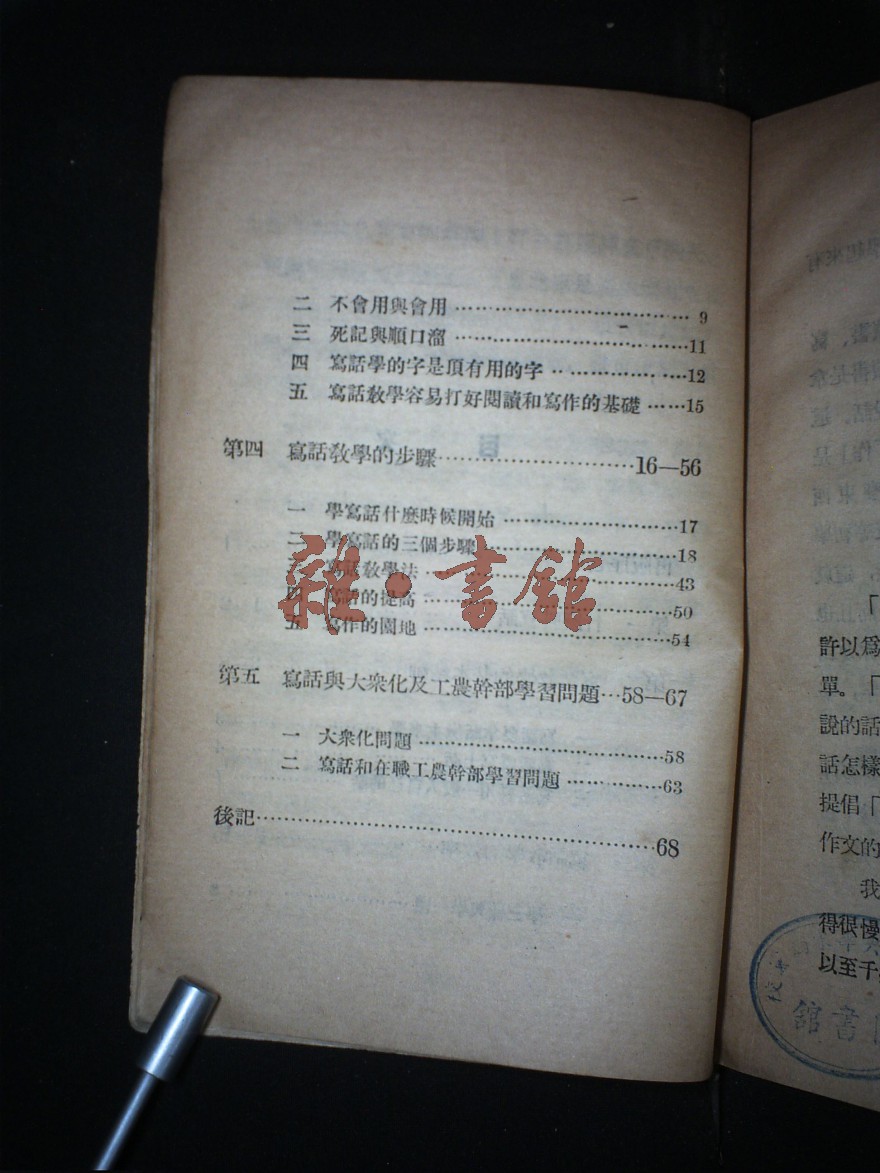 二 不會用與會用 ………………………… 9
三 死記與順口溜 …………………………11
四 寫話學的字是頂有用的字 ………………12
五 寫話敎學容易打好閱讀和寫作的基礎 ……15
第四 寫話敎學的步驟………………………16—56
一 學寫話什麼時候開始 ……………………17
二 學寫話的三個步驟 ………………………18
三 寫話敎學法 ………………………………43
四 寫話的提高 ………………………………50
五 寫作的園地 ………………………………54
第五 寫話與大衆化及工農幹部學習問題…58—67
一 大衆化問題 ………………………………58
二 寫話和在職工農幹部學習問題 …………63
後記……………………………………………68
雜·書館
「
許以爲
單。「
說的話
話怎樣
提倡「
作文的
我
得很慢
以至千
書館